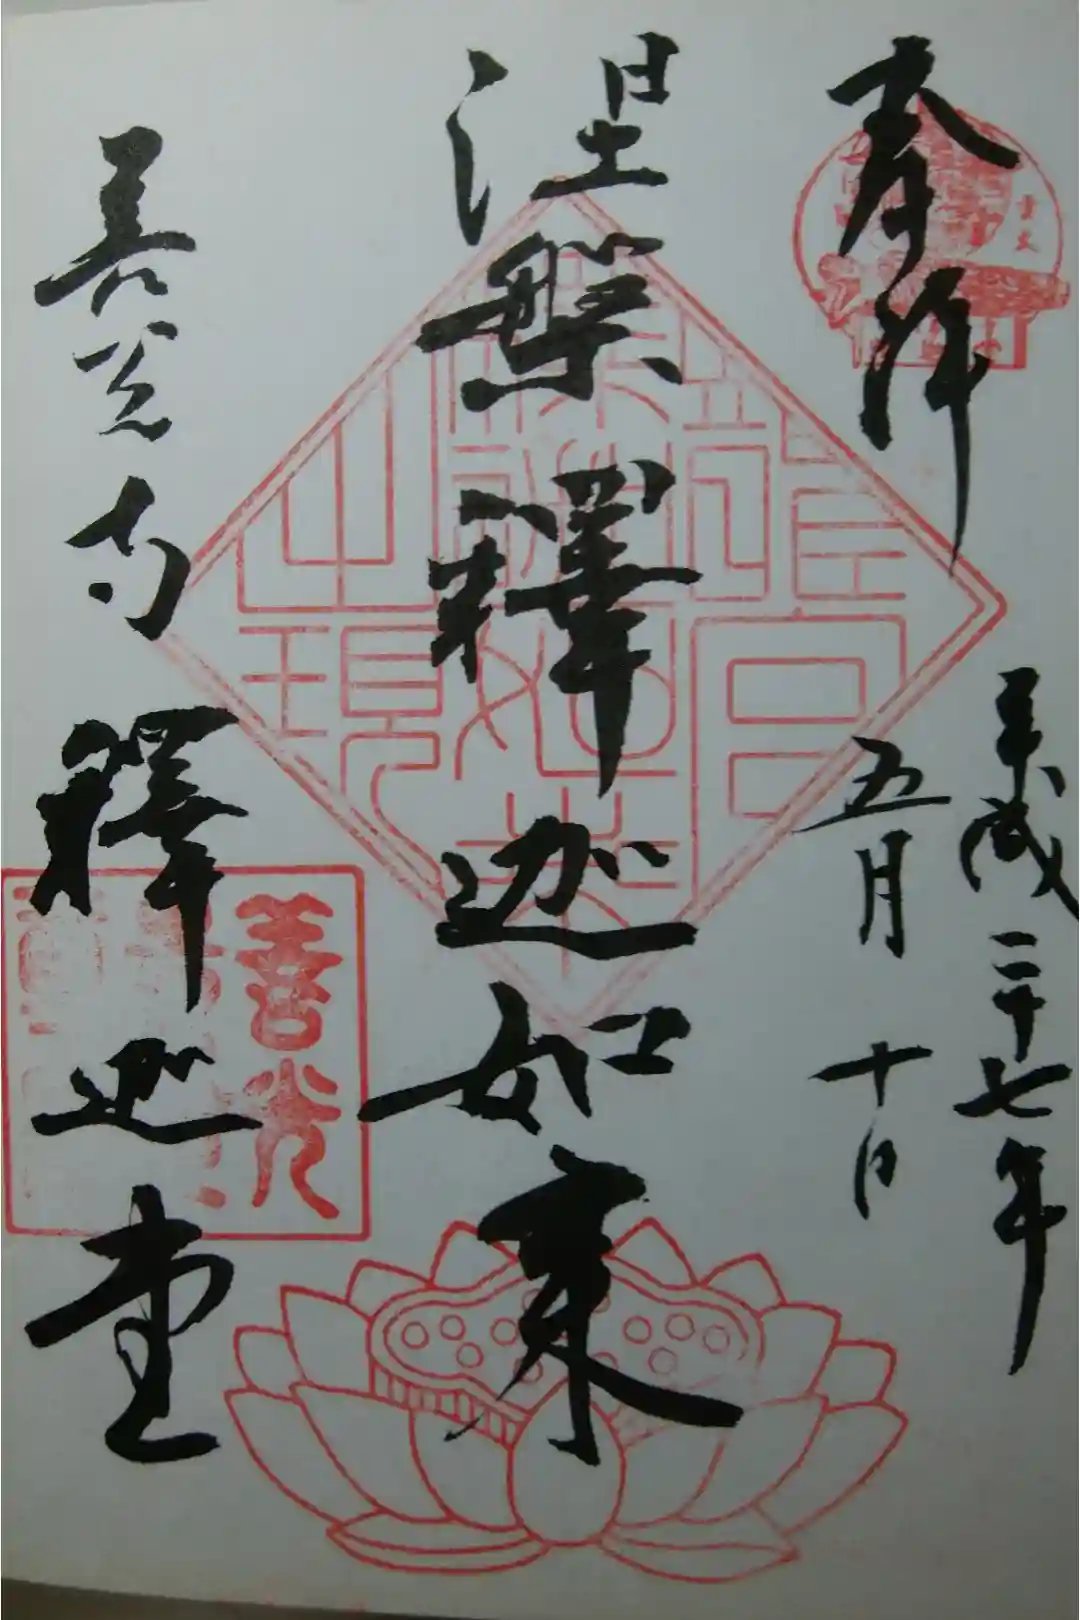 奉拝
平成二十七年
五月十日
涅槃釋迦如来
善光寺釋迦堂
善光